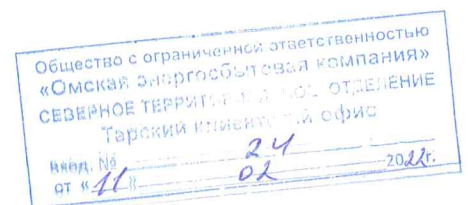 Общество с ограниченной ответственностью
«Омская энергосбытовая компания»
СЕВЕРНОЕ ТЕРРИТОРИАЛЬНОЕ ОТДЕЛЕНИЕ
Тарский клиентский офис
вход. № 24
от «11» 02 2022г.